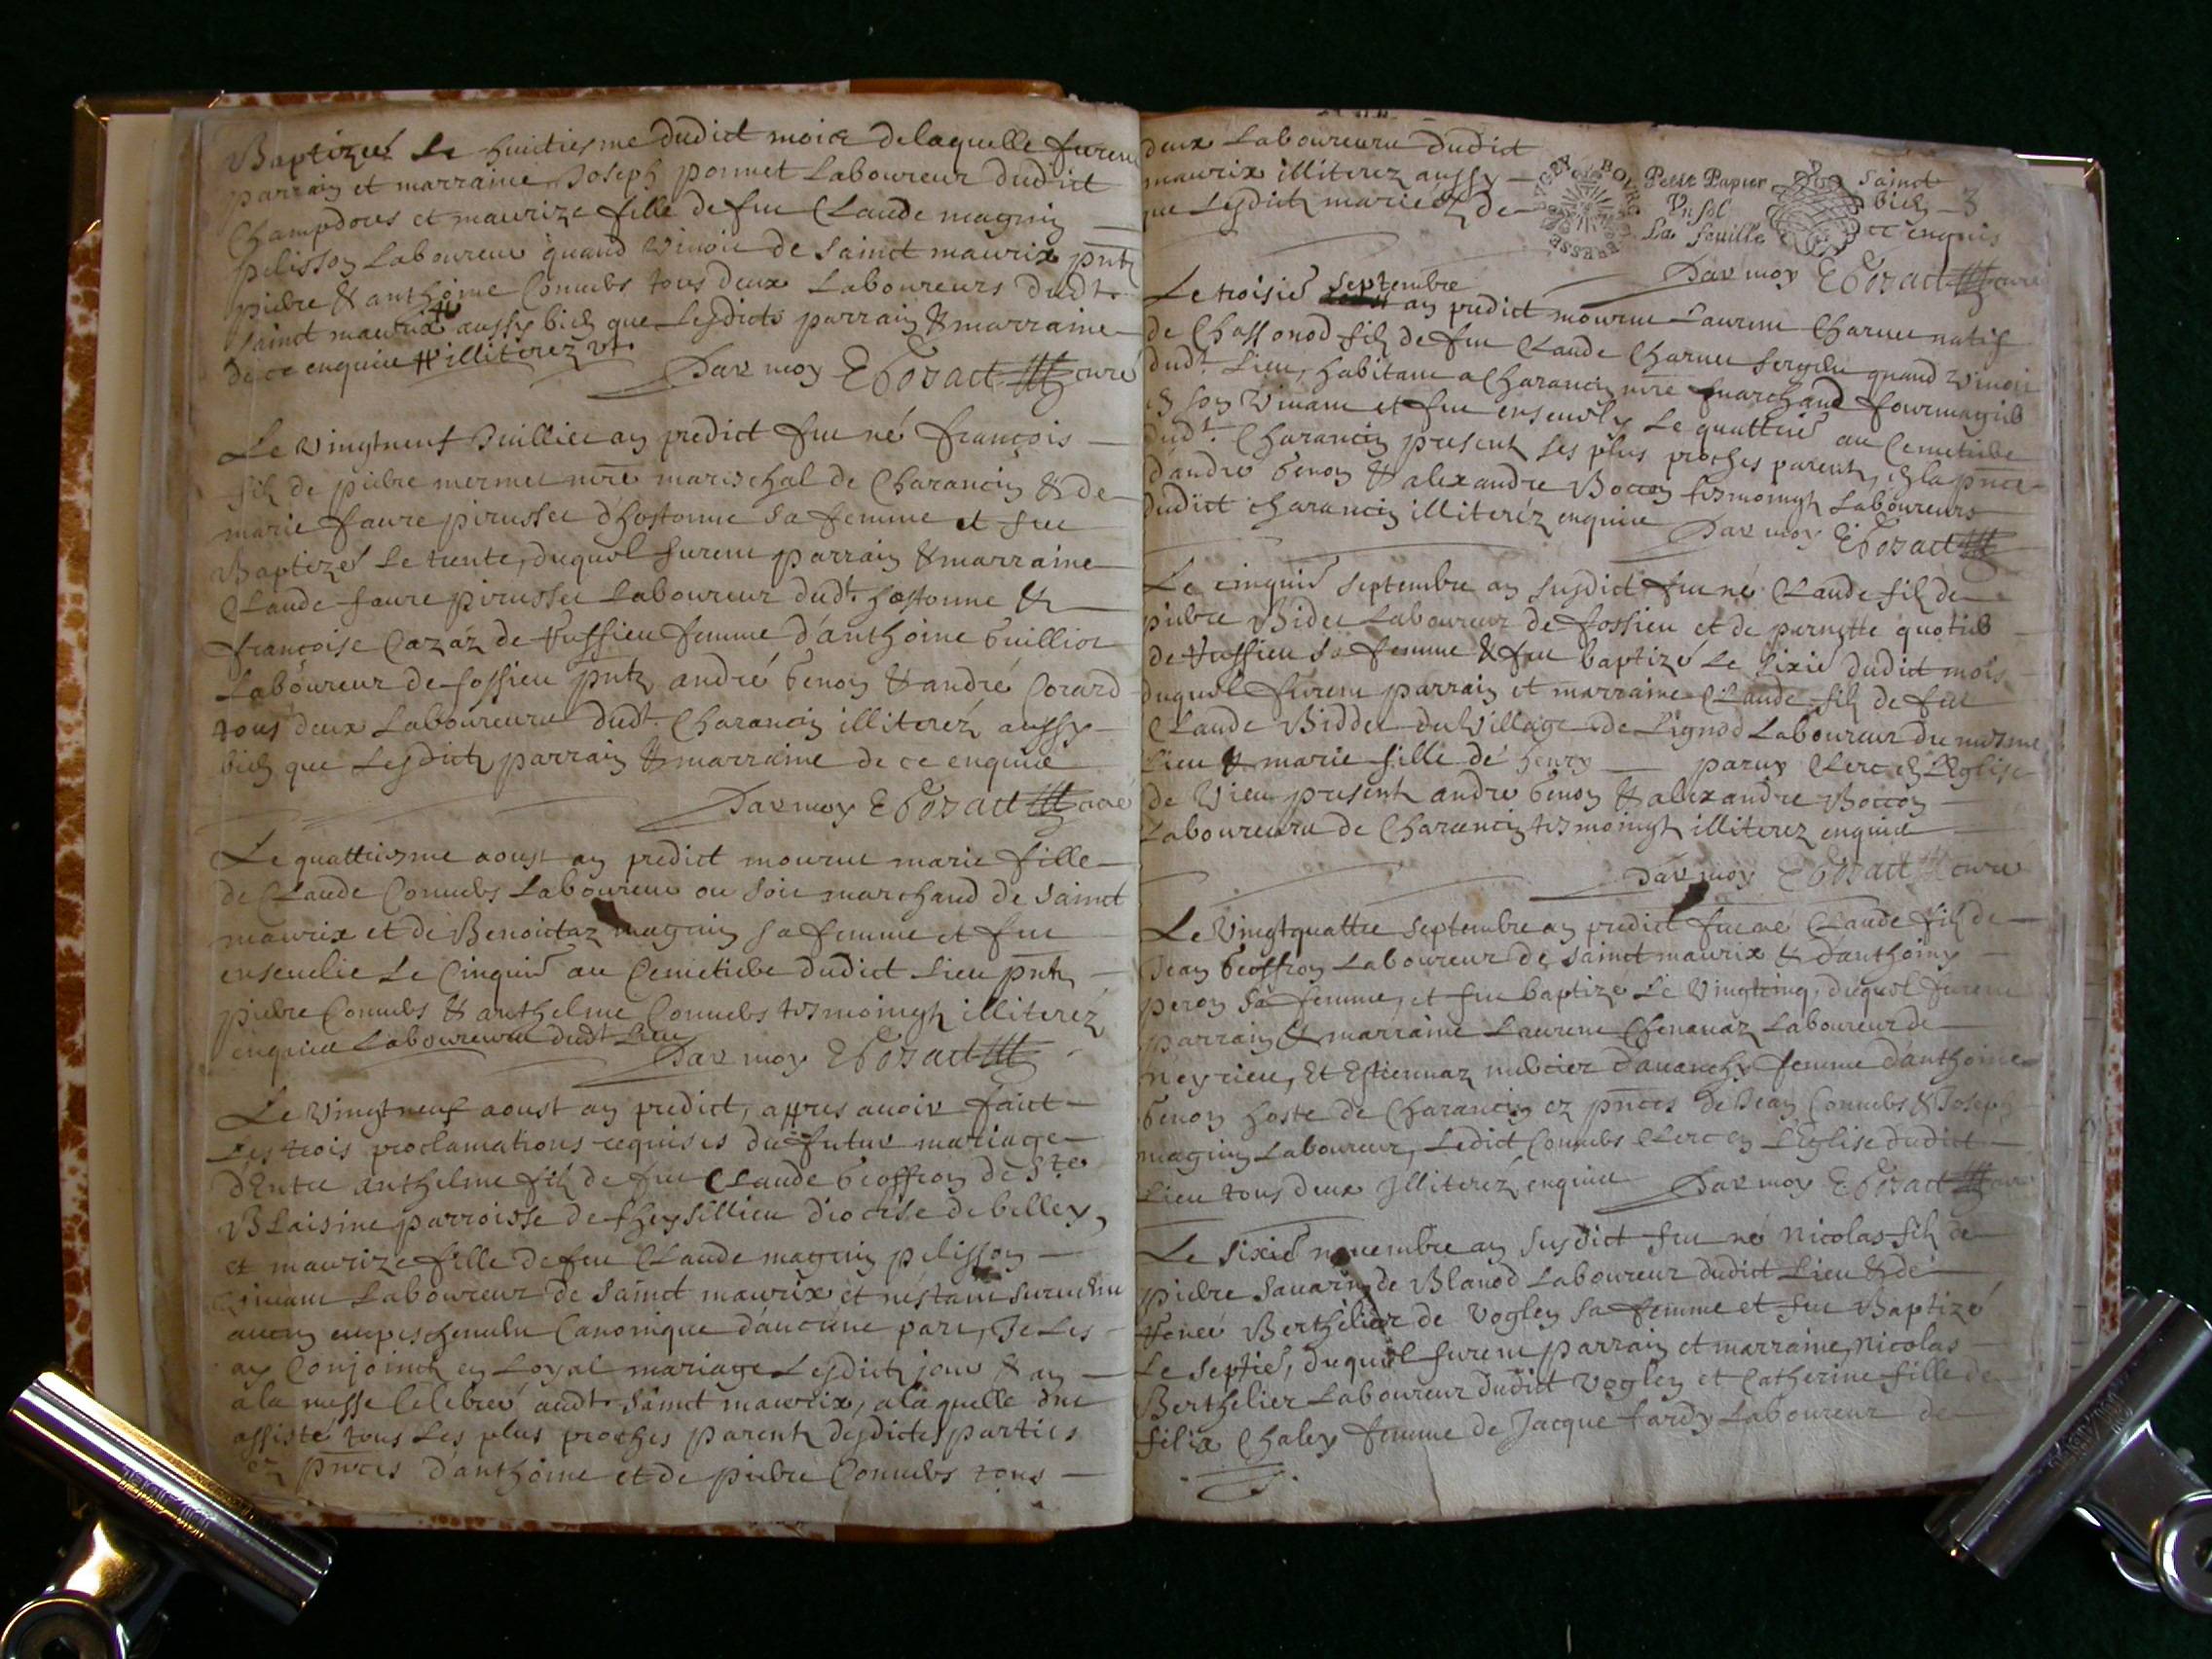 Baptizée Le huitiesme dudict mois delaquelle furent
parrain et marraine Joseph ponnet Laboureur dudict
Champdores et maurize fille de feu Claude magnin
pelisson Laboureur quand vivoit de sainct maurix pntz
pierre & anthoine Connubs tous deux Laboureurs dudt
sainct maurix aussy bien que Lesdicts parrain & marraine
de ce enquis illiterez
Par moy curé
Le vingtneuf Juillet an predict fut né françois
filz de pierre mermet mre marischal de Charancin & de
marie faure pirusset d'hostonne sa femme et fut
Baptizé Le trente, duquel furent parrain & marraine
Claude faure pirusset Laboureur dudt hostonne &
françoise Cazaz de fussieu femme d'anthoine Guilliot
Laboureur de fossieu pntz andré Genon & andré Corard
tous deux Laboureurs dudt Charancin illiterez aussy
bien que Lesdictz parrain & marraine de ce enquis
Par moy curé
Le quattriesme aoust an predict mourut marie fille
de Claude Connubs Laboureur ou soit marchand de sainct
maurix et de Benoictaz magnin sa femme et fut
ensevelie Le Cinquie au Cemetiere dudict Lieu pntz
pierre Connubs & anthelme Connubs tesmoingtz illiterez
enquis Laboureurs dudt Lieu
Par moy
Le vingtneuf aoust an predict, appres avoir faict
Les trois proclamations requises du futur mariage
d'Entre anthelme filz de feu Claude Geoffron de Ste
Blaisine parroisse de Theysillieu diocese de belley,
et maurize fille de feu Claude magnin pelisson
vivant Laboureur de sainct maurix et n'estant survenu
aucun empeschement Canonique d'aucune part, Je Les
ay Conjoinctz en Loyal mariage Lesdictz jour & an
a la messe Celebrée audt sainct maurix, a laquelle ont
assisté tous Les plus proches parentz desdictes parties
ez pnces d'anthoine et de pierre Connubs tous
deux Laboureurs dudict
maurix illiterez aussy
que Lesdictz mariéz de
BUGEY BOURG BRESSE
Petit Papier
Un sol
La feuille
sainct
bien 3
ce enquis
Par moy curé
Le troisie septembre
an predict mourut Laurent Charvet natif
de Chassonod filz de feu Claude Charvet sergent quand vivoit
dudt Lieu, habitant a Charancin mre marchand fourmagier
en son vivant et fut ensevely Le quattrie au Cemetiere
dudt Charancin presentz ses plus proches parentz, en la pnce
d'andré Genon & alexandre Boccon tesmoingtz Laboureurs
dudict charancin illiteréz enquis
Par moy
Le cinquie septembre an susdict fut né Claude filz de
pierre Bidet Laboureur de fossieu et de pernette quotier
de fussieu sa femme & fut baptizé Le sixie dudict mois
duquel furent parrain et marraine Claude filz de feu
Claude Biddet du Village de Lignod Laboureur du mesme
Lieu & marie fille de henry paruy Clerc en L'Eglise
de Vieu presentz andre Genon & alexandre Boccon
Laboureurs de Charancin tesmoingtz illiterez enquis
Par moy curé
Le Vingtquattre septembre an predict fut né Claude filz de
Jean Geoffron Laboureur de sainct maurix & d'anthoiny
peron sa femme, et fut baptize Le Vingtcinq, duquel furent
parrain & marraine Laurent Chenavaz Laboureur de
neyrieu, Et Estiennaz mercier d'avanchy femme d'anthoine
Genon hoste de Charancin ez pnces de Jean Connubs & Joseph
magnin Laboureur, Ledict Connubs Clerc en L'Eglise dudict
Lieu tous deux Illiteréz enquis Par moy curé
Le sixie novembre an susdict fut né Nicolas filz de
pierre savarin de Blanod Laboureur dudict Lieu & de
Berthelier de voglen sa femme et fut Baptizé
Le septie, duquel furent parrain et marraine Nicolas
Berthelier Laboureur dudict voglen et Catherine fille de
felix Chaley femme de Jacque tardy Laboureur de